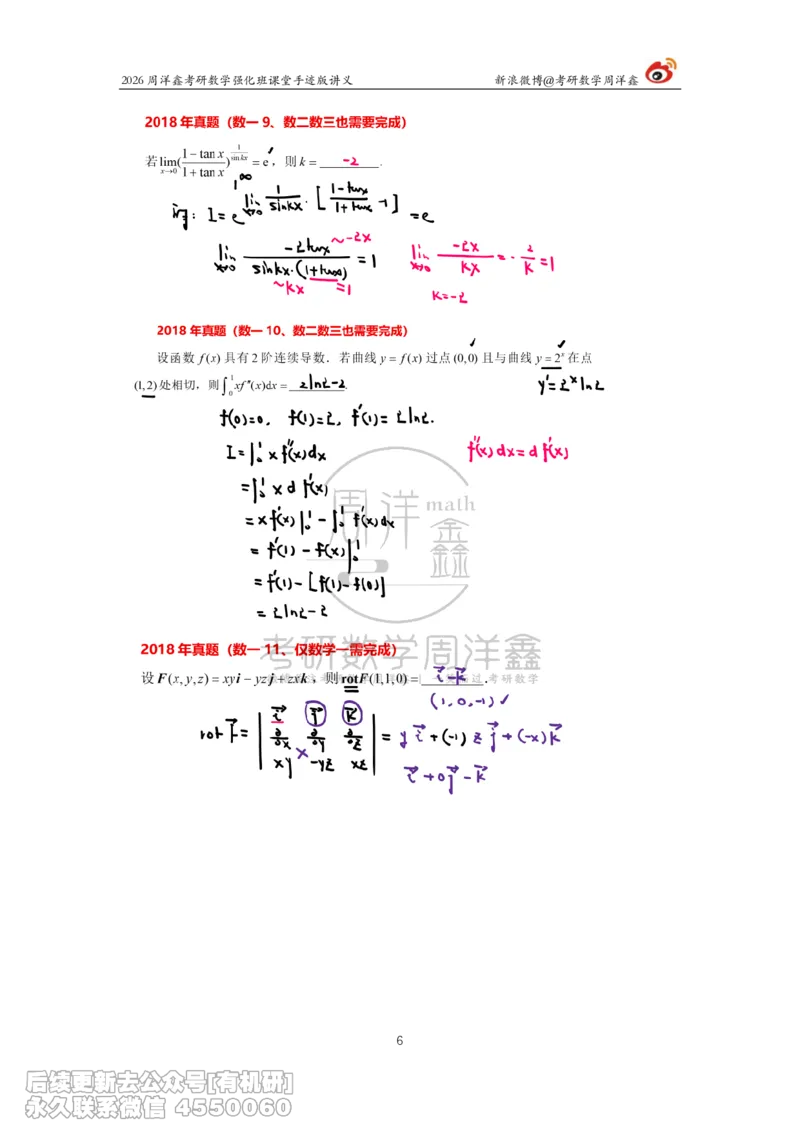 2026 周洋鑫考研数学强化班课堂手迹版讲义 新浪微博@考研数学周洋鑫
2018 年真题（数一 9、数二数三也需要完成）
若 lim_{x→0} ((1−tan x)/(1+tan x))^{1/(sin kx)} = e ✓，则 k = -2 .
1^∞
I = e^{lim_{x→0} 1/(sinkx)·[(1−tanx)/(1+tanx) −1]} = e
lim_{x→0} (−2tanx)/(sinkx·(1+tanx)) = 1 ~−2x ~kx =1 lim_{x→0} (−2x)/(kx) = −2/k = 1
k=−2
2018 年真题（数一 10、数二数三也需要完成）
设函数 f(x) 具有 2 阶连续导数．若曲线 y = f(x) 过点 (0,0) 且与曲线 y = 2^x 在点
(1,2) 处相切，则 ∫_0^1 xf″(x)dx = 2ln2−2 . y'=2^x ln2
f(0)=0, f(1)=2, f'(1)=2ln2.
I=∫_0^1 x f″(x)dx f″(x)dx=d f'(x)
=∫_0^1 x d f'(x)
=xf'(x)|_0^1 − ∫_0^1 f'(x)dx
= f'(1) − f(x)|_0^1
= f'(1) − [f(1)−f(0)]
= 2ln2−2
周洋鑫 math
考研数学周洋鑫
2018 年真题（数一 11、仅数学一需完成）
设 F(x,y,z) = xyi − yzj + zxk，则 rotF(1,1,0) = i−k .
(1,0,−1) ✓
rot F = | i j k ; ∂/∂x ∂/∂y ∂/∂z ; xy −yz xz | = y i +(−1) z j +(−x) k
i + 0j − k
6
后续更新去公众号[有机研]
永久联系微信 4550060